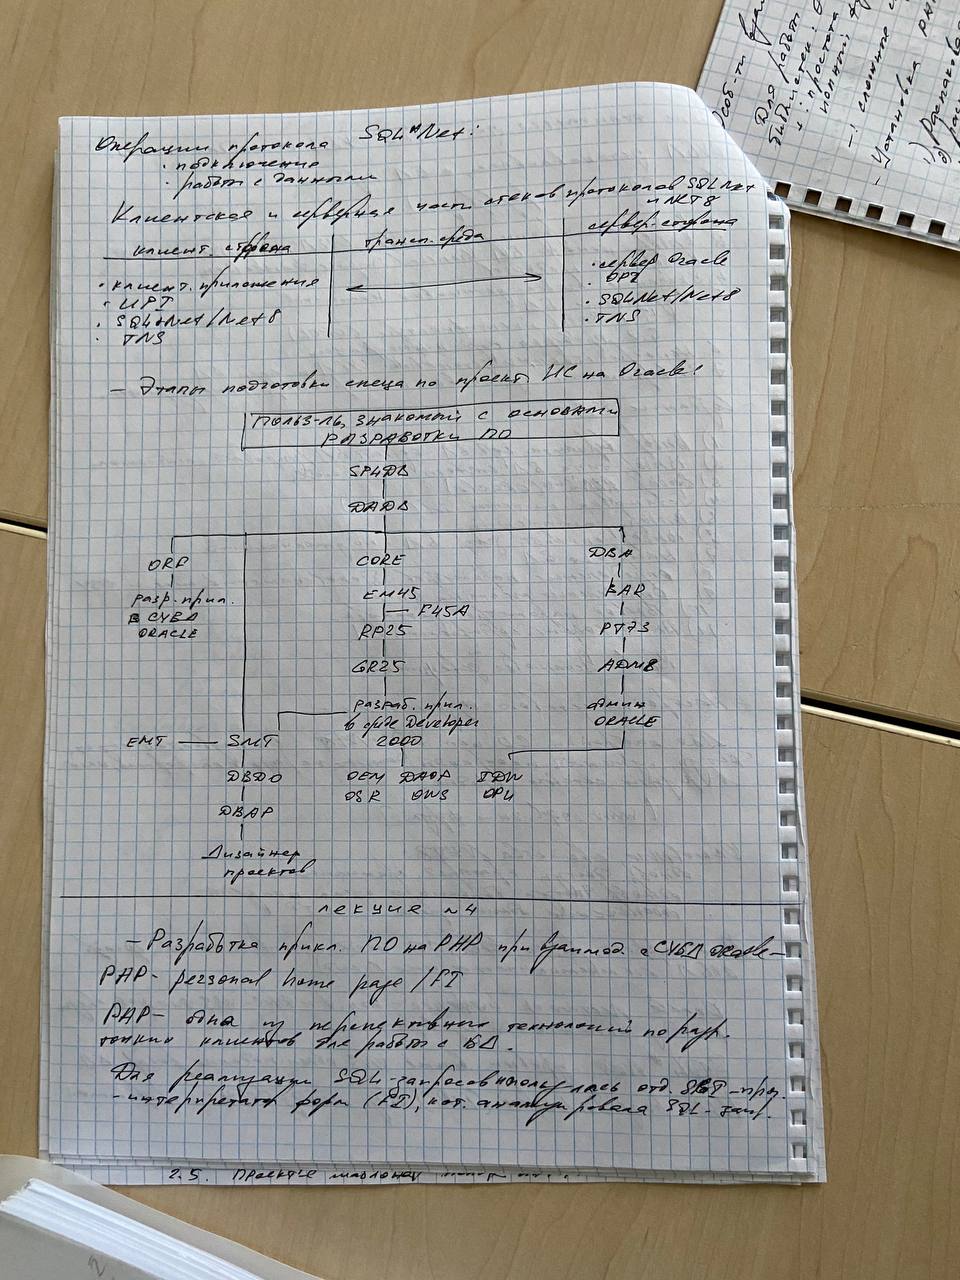 Операции протокола SQL*Net:
· подключение
· работа с данными
Клиентская и серверная части стеков протоколов SQLNet
и NET8
клиент. сторона трансп. среда сервер. сторона
· клиент. приложения
· UPI
· SQL*Net/Net8
· TNS
· сервер Oracle
· OPI
· SQL*Net/Net8
· TNS
- Этапы подготовки спеца по проект. ИС на Oracle:
польз-ль, знакомый с основами
разработки ПО
SP4DB
DADB
ORF CORE DBA
разр. прил.
в СУБД
ORACLE
EM45
F45A
RP25
GR25
разраб. прил.
в среде Developer
2000
BAR
PT73
ADM8
админ
ORACLE
EMT SMT
DBDO
DBAP
Дизайнер
проектов
OEM DAOP TDW
OSR OWS OPU
лекция №4
- Разработка прикл. ПО на PHP при взаимод. с СУБД Oracle -
PHP - personal home page / FI
PHP - одна из перспективных технологий по разр.
тонких клиентов для работы с БД.
Для реализации SQL-запросов использ-лась отд. прог.
-интерпретатор форм (FI), кот. анализировала SQL-запр.
2.5. Проектные
Для работы
библиотек:
+: простота
-: сложные
- Установка
1) Распаковка
2)